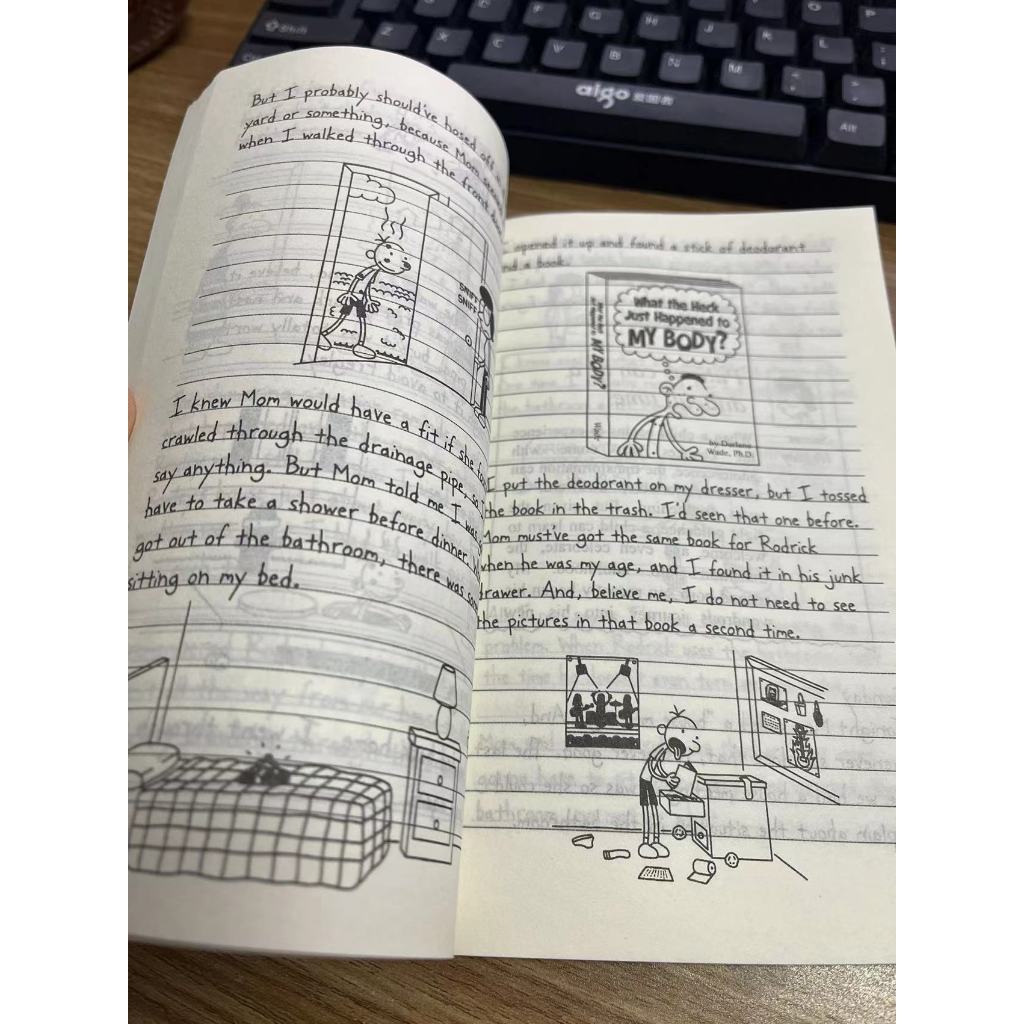 Shift
Z
X
C
V
B
N
M
G
H
J
K
L
aigo 爱国者
Alt
But I probably should've hosed off
yard or something, because Mom
when I walked through the front
SNIFF
SNIFF
I knew Mom would have a fit if she
crawled through the drainage pipe, so
say anything. But Mom told me I was
have to take a shower before dinner.
got out of the bathroom, there was
sitting on my bed.
opened it up and found a stick of deodorant
a book.
What the Heck
Just Happened to
MY BODY?
MY BODY?
Wade
by Darlene
Wade, Ph.D.
I put the deodorant on my dresser, but I tossed
the book in the trash. I'd seen that one before.
Mom must've got the same book for Rodrick
when he was my age, and I found it in his junk
drawer. And, believe me, I do not need to see
the pictures in that book a second time.